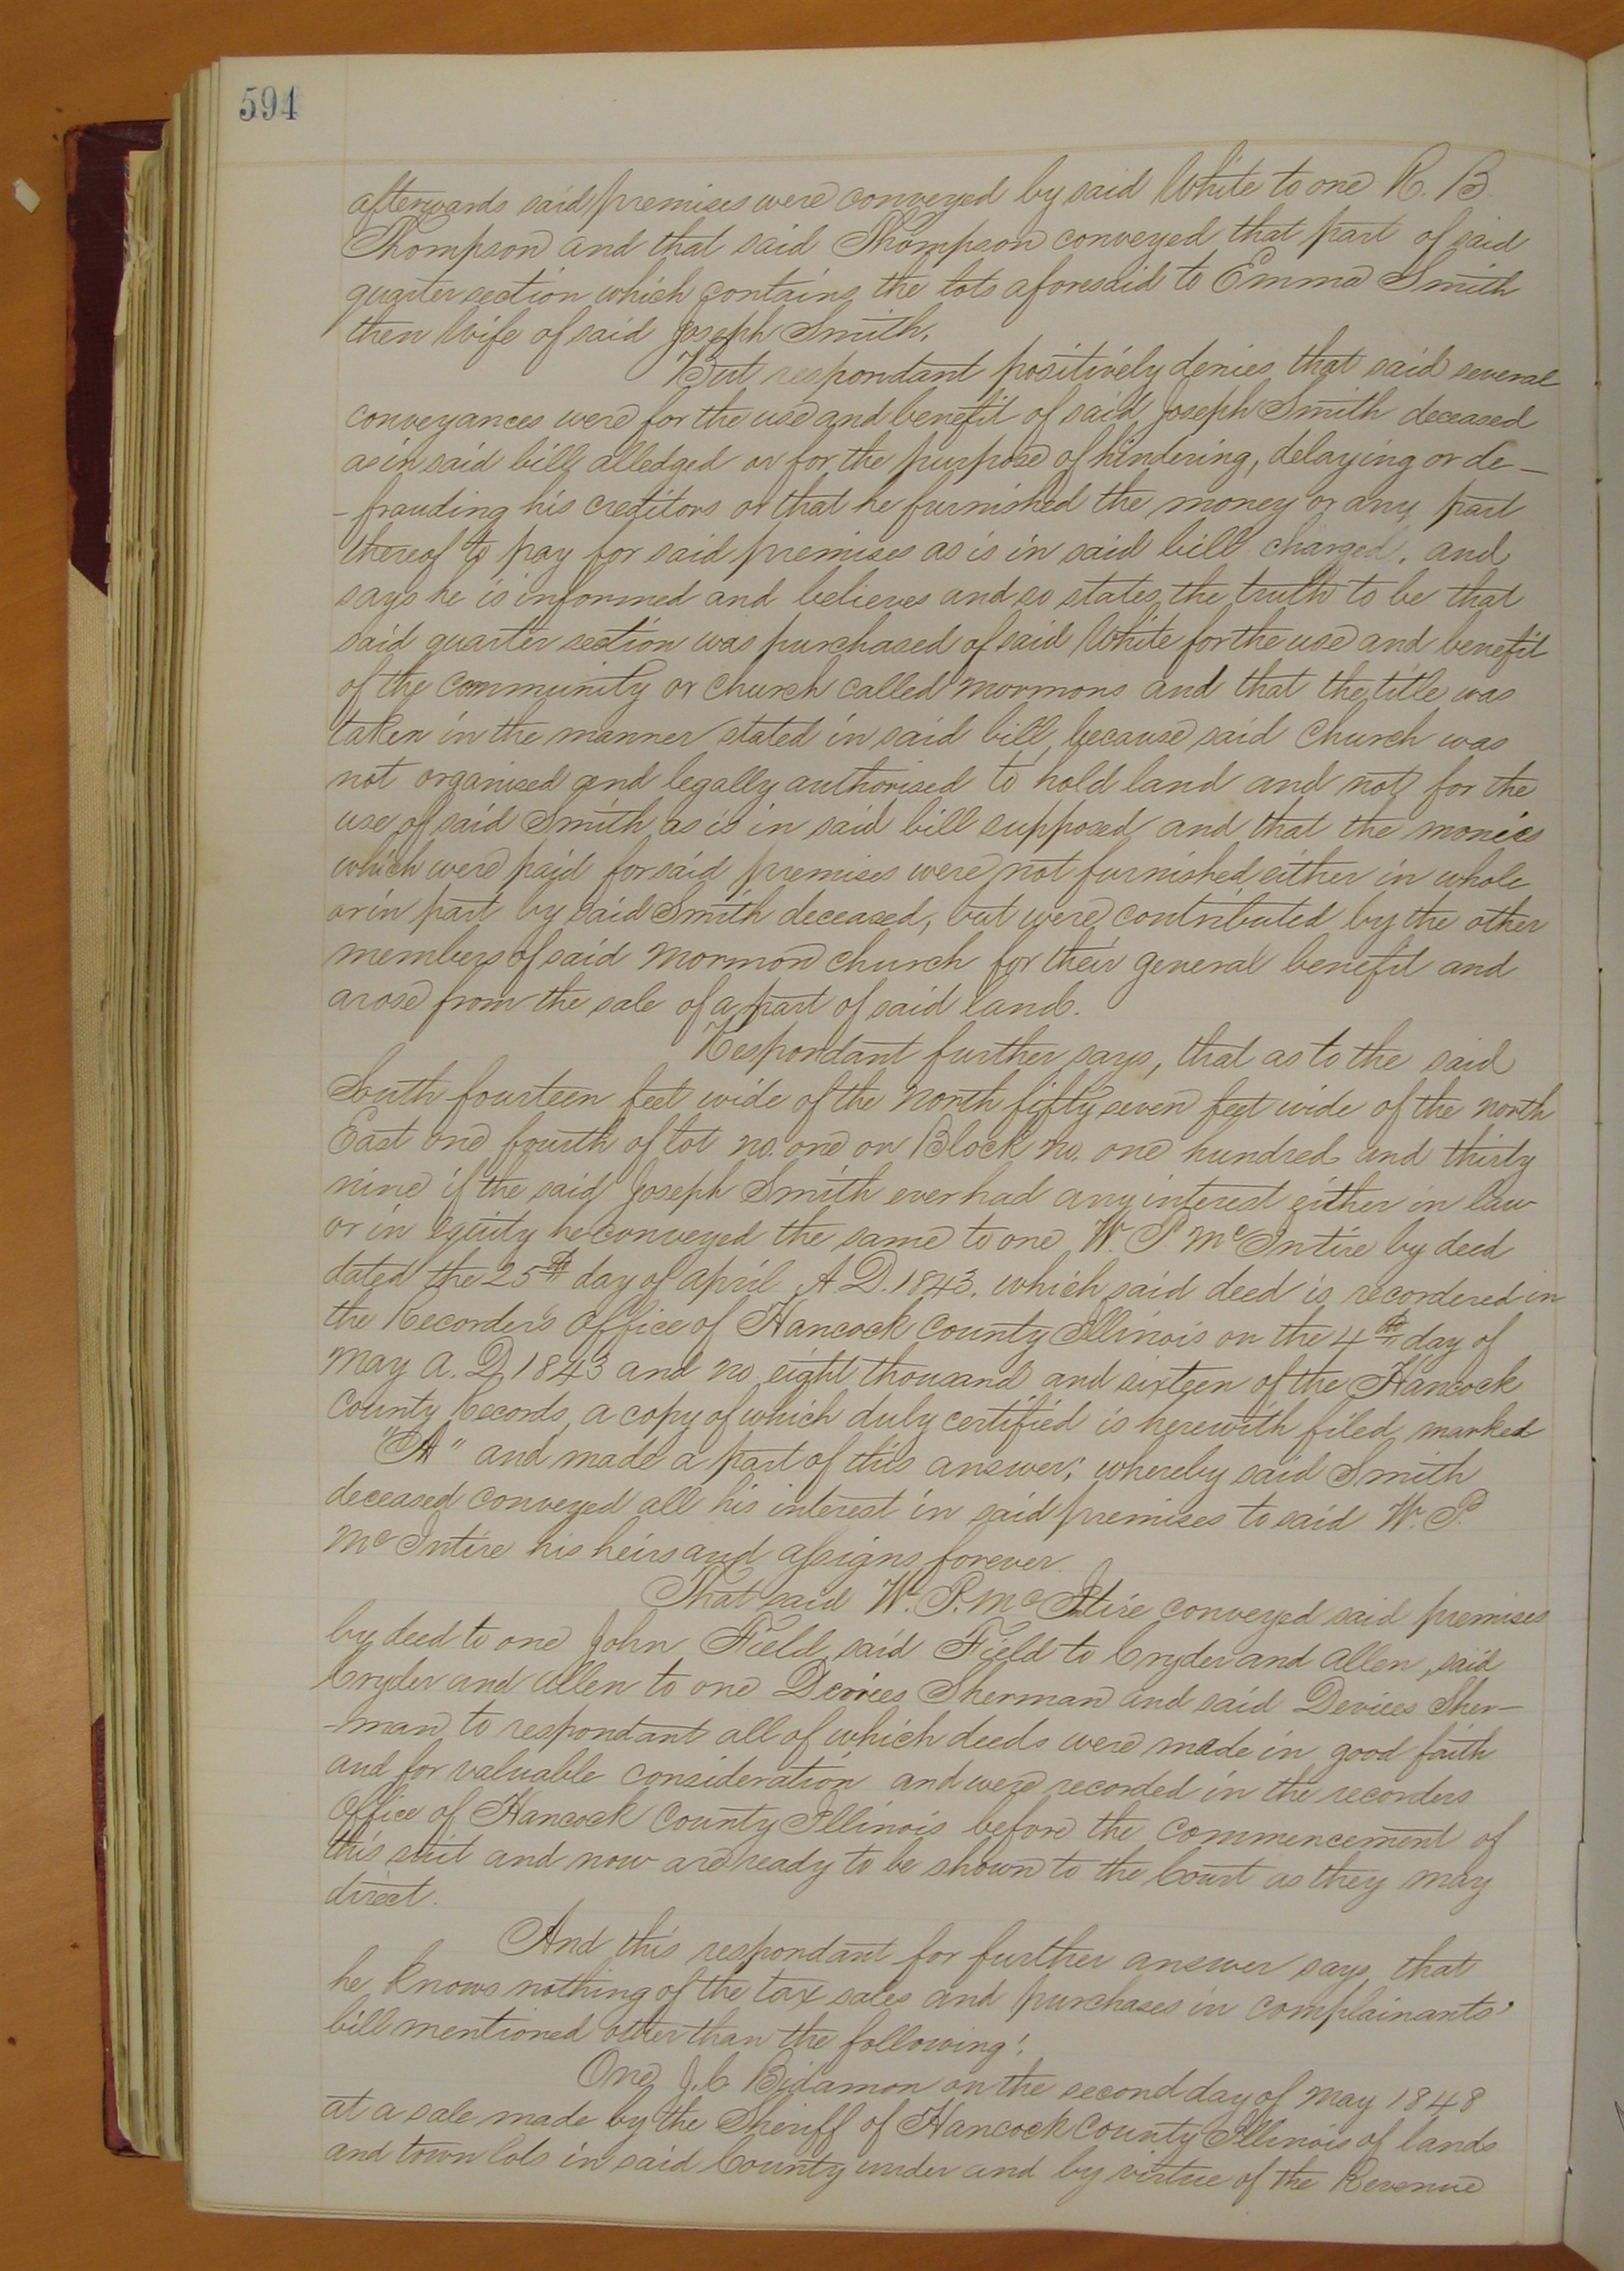 594
afterwards said premises were conveyed by said White to one R. B.
Thompson and that said Thompson conveyed that part of said
quarter section which contains the lots aforesaid to Emma Smith
then Wife of said Joseph Smith.
But respondant positively denies that said several
conveyances were for the use and benefit of said Joseph Smith deceased
as in said bill alledged or for the purpose of hindering, delaying or de-
-frauding his creditors or that he furnished the money or any part
thereof to pay for said premises as is in said bill charged. and
says he is informed and believes and so states the truth to be that
said quarter section was purchased of said White for the use and benefit
of the Community or Church called Mormons and that the title was
taken in the manner stated in said bill, because said Church was
not organised and legally authorised to hold land and not for the
use of said Smith as is in said bill supposed and that the monies
which were paid for said premises were not furnished either in whole
or in part by said Smith deceased, but were contributed by the other
members of said Mormon Church for their general benefit and
arose from the sale of a part of said land.
Respondant further says, that as to the said
South fourteen feet wide of the North fifty seven feet wide of the North
East one fourth of lot no. one on Block no. one hundred and thirty
nine if the said Joseph Smith ever had any interest either in law
or in equity he conveyed the same to one W. P. McIntire by deed
dated the 25th day of April A.D. 1843. which said deed is recordered in
the Recorder's Office of Hancock County Illinois on the 4th day of
May A.D. 1843 and no. eight thousand and sixteen of the Hancock
County Records, a copy of which duly certified is herewith filed marked
"A" and made a part of this answer; whereby said Smith
deceased conveyed all his interest in said premises to said W. P.
McIntire his heirs and assigns forever.
That said W. P. McIntire conveyed said premises
by deed to one John Field, said Field to Cryder and Allen, said
Cryder and Allen to one Devices Sherman and said Devices Sher-
-man to respondant all of which deeds were made in good faith
and for valuable consideration and were recorded in the recorders
Office of Hancock County Illinois before the commencement of
this suit and now are ready to be shown to the Court as they may
direct.
And this respondant for further answer says, that
he knows nothing of the tax sales and purchases in complainants'
bill mentioned other than the following:
One J. C. Bidamon on the second day of May 1848
at a sale made by the Sheriff of Hancock County Illinois of lands
and town lots in said County under and by virtue of the Revenue